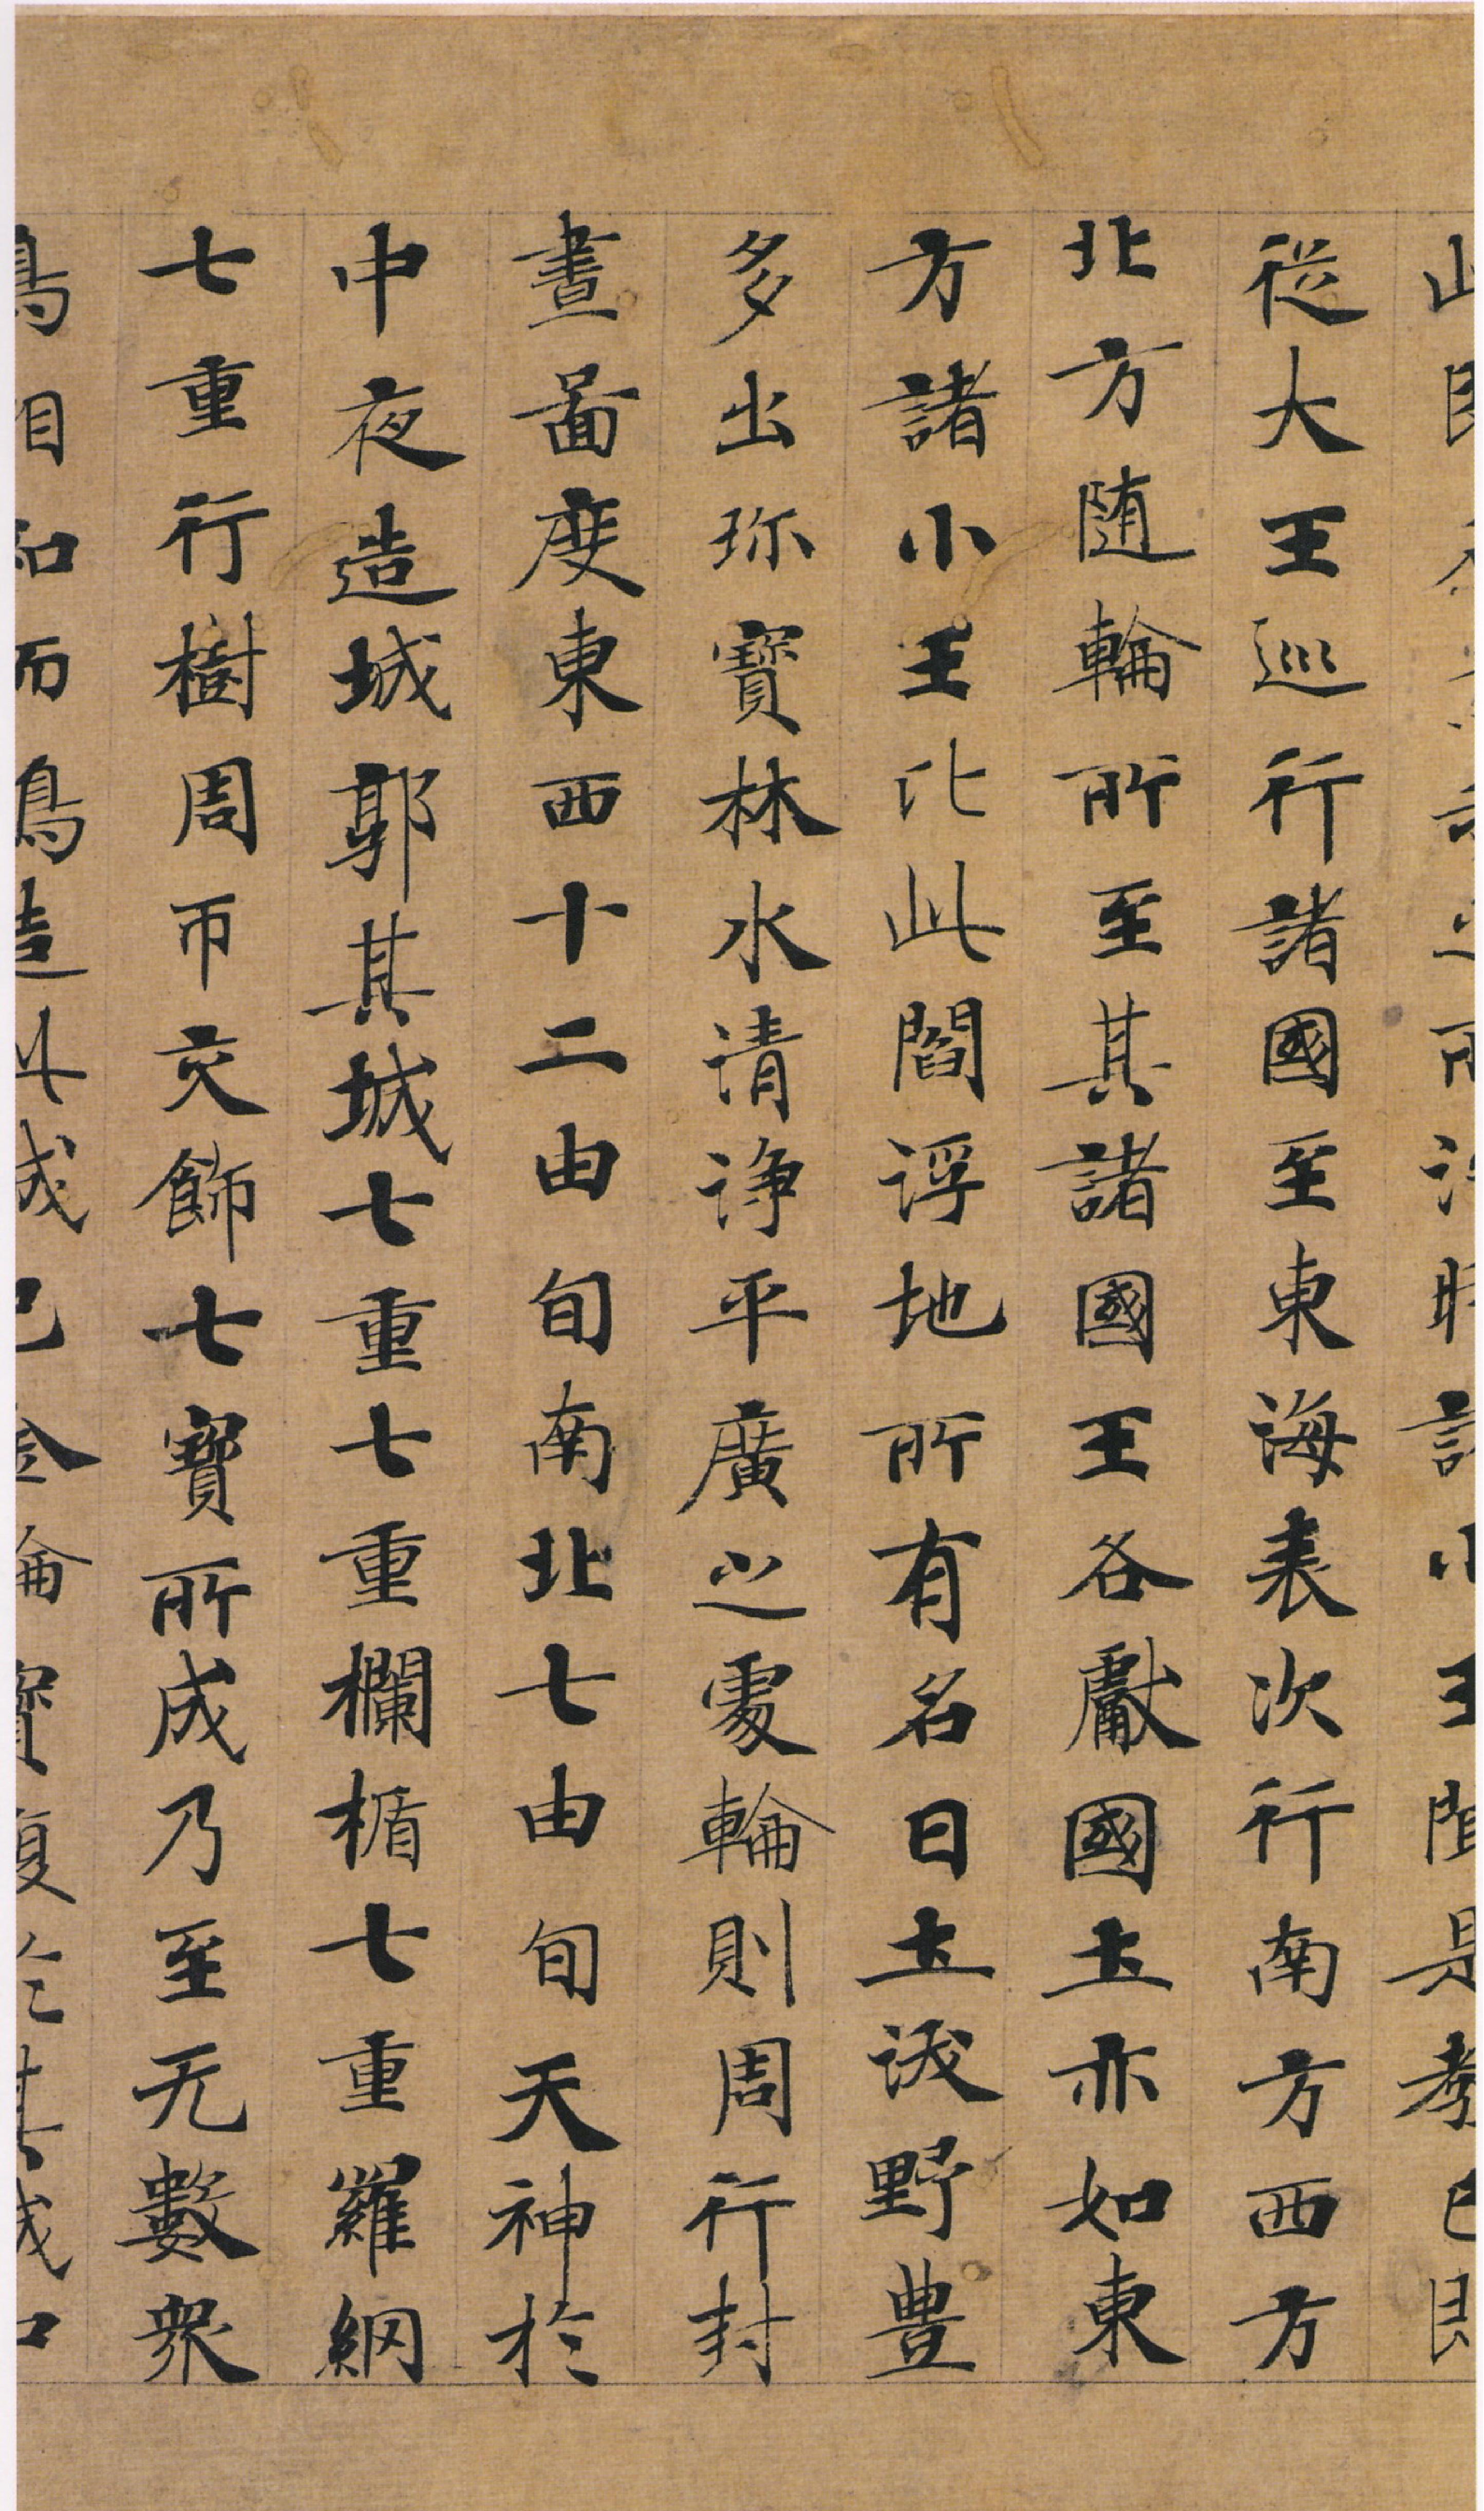 此即之所治時諸小王聞是教已即
從大王巡行諸國至東海表次行南方西方
北方随輪所至其諸國王各獻國土亦如東
方諸小王比此閻浮地所有名曰土沃野豊
多出珎寶林水清淨平廣之處輪則周行封
畫啚度東西十二由旬南北七由旬天神於
中夜造城郭其城七重七重欄楯七重羅網
七重行樹周帀交飾七寶所成乃至无數衆
鳥相和而鳴造此城已金輪寶復於其城中